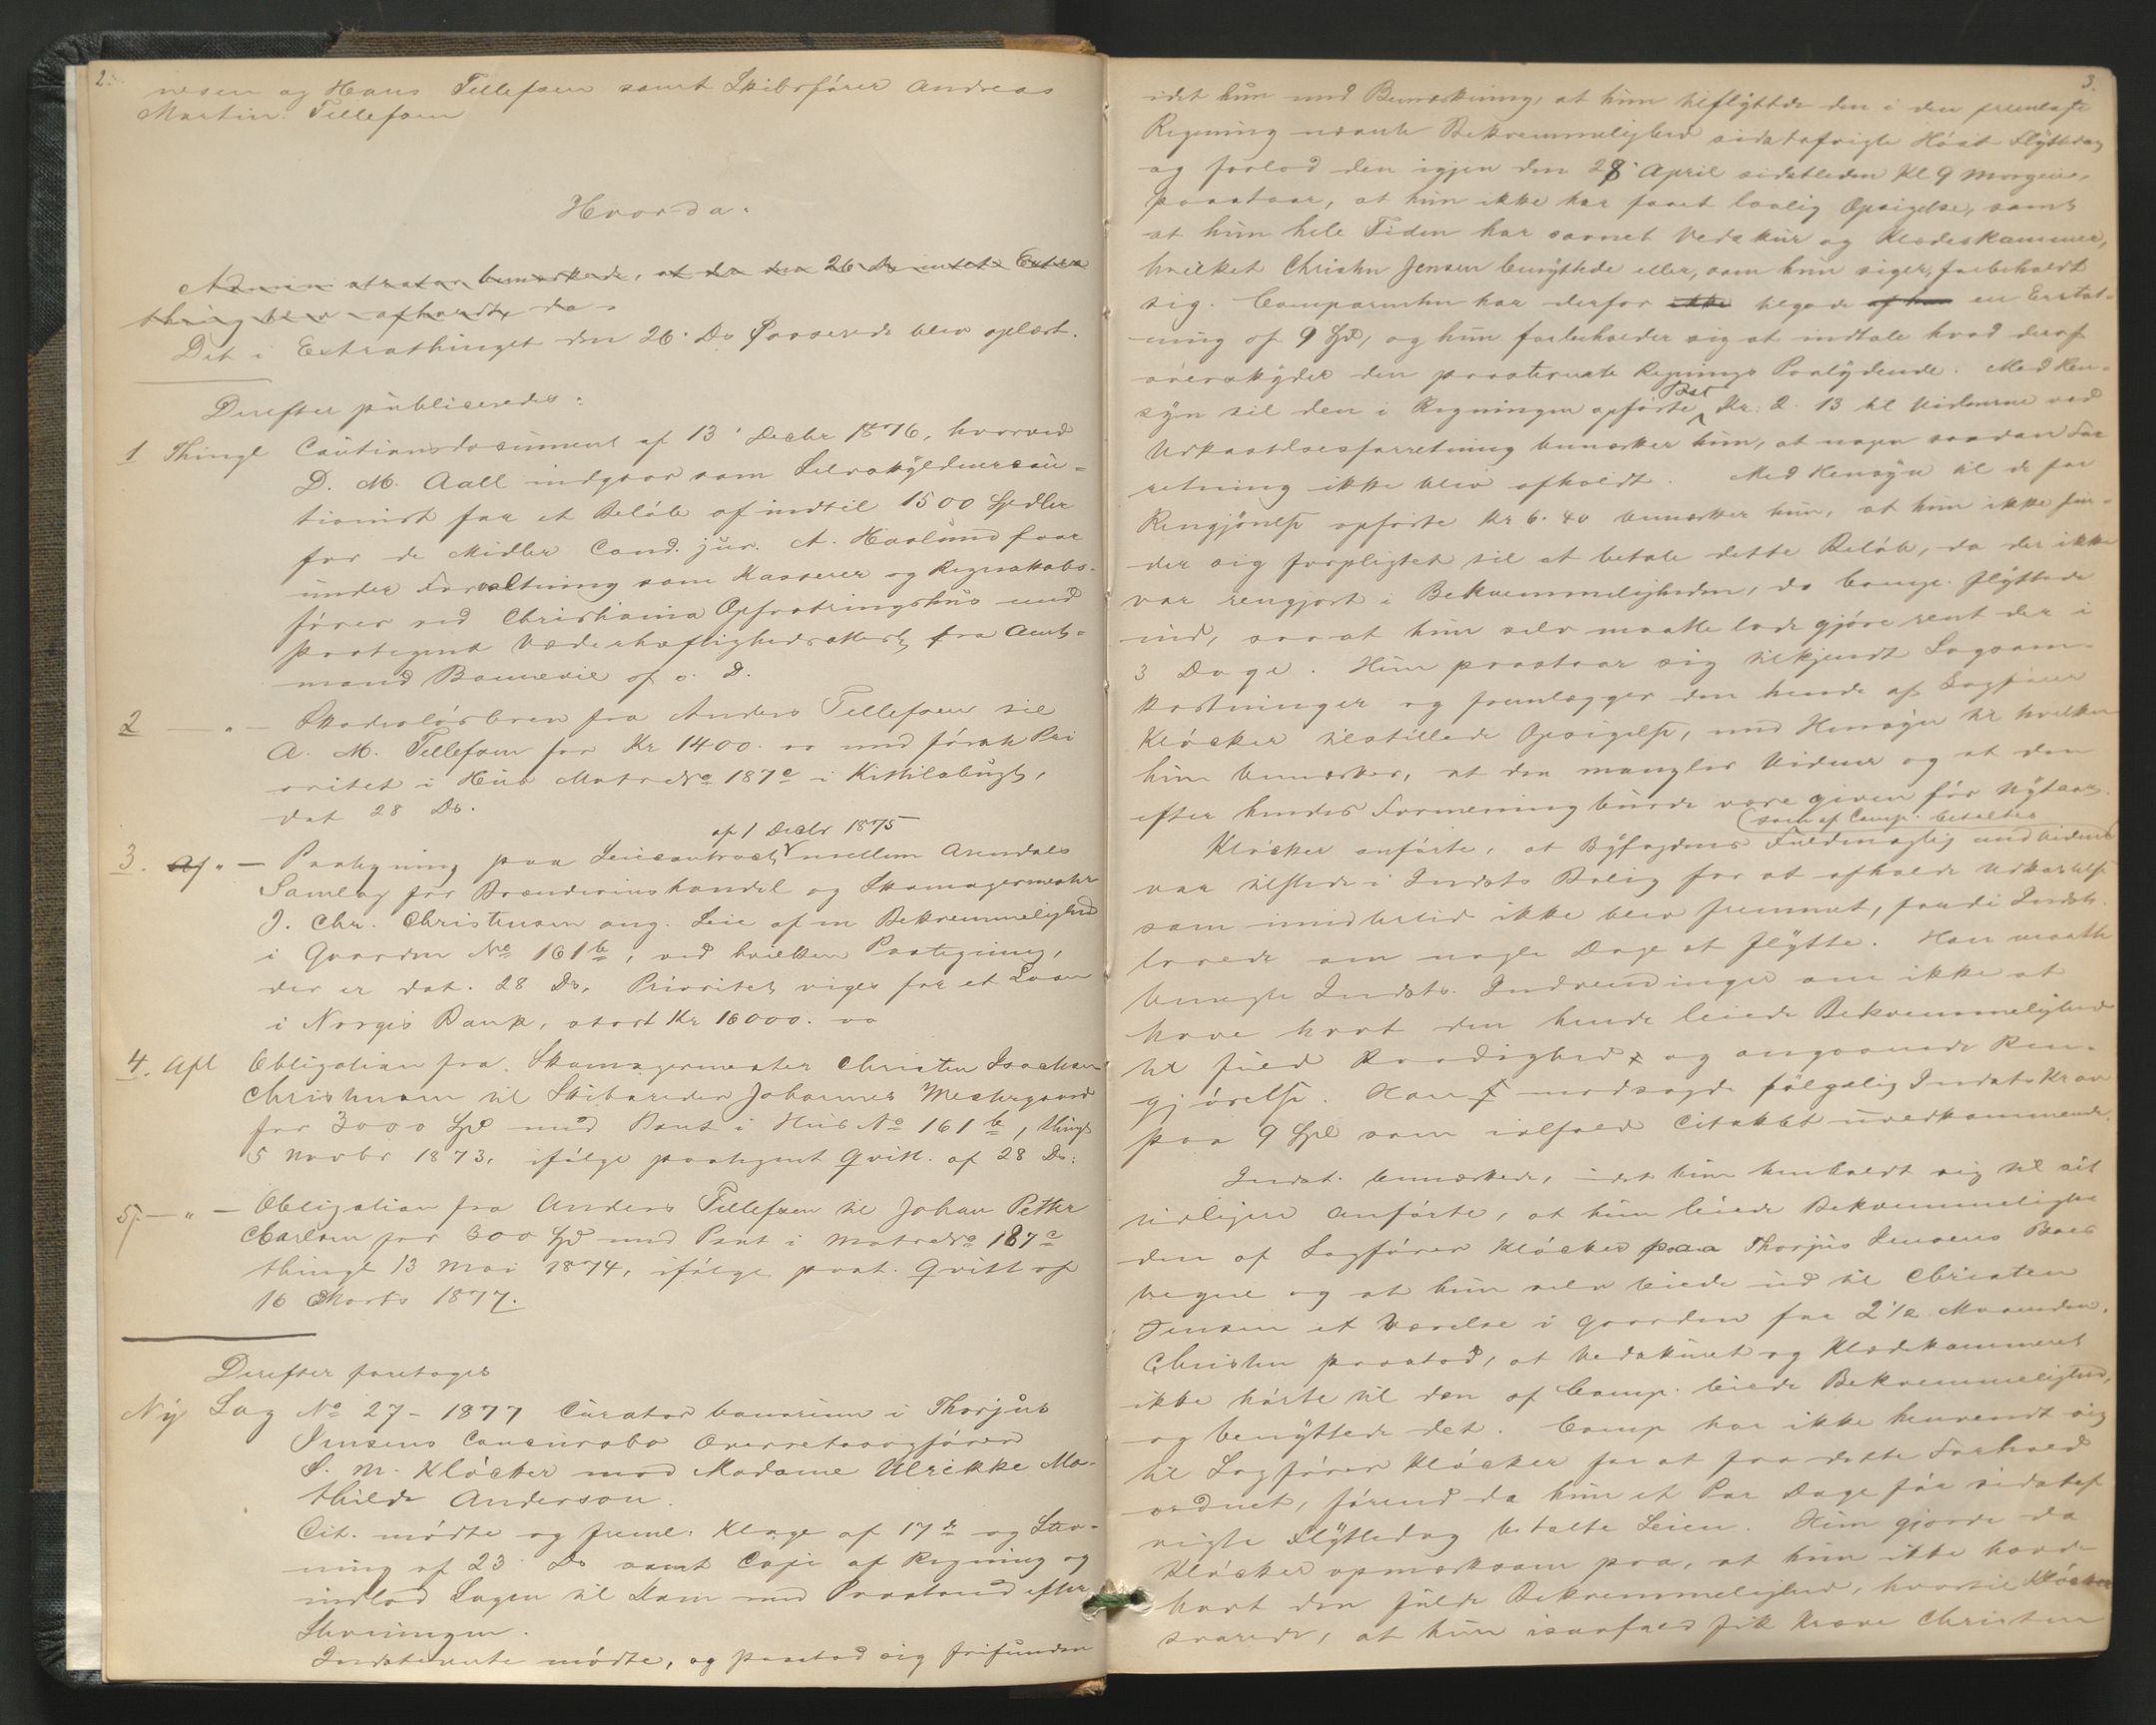 2.
nesen og Hans Tellefsen samt Skibsfører Andreas
Martin Tellefsen
Hvor da:
Administrator bemærkede, at da den 26 ds intet Extra
thing blev afholdt, da
Det i Extrathinget den 26. Ds Passerede blev oplæst.
Derefter publiceredes:
1 Thingl Cautionsdocument af 13 Decbr 1876, hvorved
D. M. Aall indgaar som Selvskyldnercau-
tionist for et Beløb af indtil 1500 Spdlr
for de Midler Cand. jur. A. Haslund faar
under Forvaltning som Kasserer og Regnskabs-
fører ved Christiania Opfostringshus med
paategnet Vederhæftighedsattest fra Amt-
mand Bonnevie af s. D.
2 — " — Skadesløsbrev fra Anders Tellefsen til
A. M. Tellefsen for Kr 1400. 00 med første Pri
oritet i Hus Matr No 187c i Kittilsbugt,
dat 28 Ds.
af 1 Decbr 1875
3. Af " — Paategning paa Leiecontract mellem Arendals
Samlag for Brændevinshandel og Skomagermester
J. Chr. Christensen ang. Leie af en Bekvemmelighed
i Gaarden No 161b, ved hvilken Paategning,
der er dat. 28 Ds, Prioritet viges for et Laan
i Norges Bank, stort Kr 16000. 00
4. Afl Obligation fra Skomagermester Christen Isachsen
Christensen til Skibsreder Johannes Mestergaard
for 3000 Spd med Pant i Hus No 161b, thingl
5 Novbr 1873, ifølge paategnet Qvitt. af 28 Ds:
5 — " — Obligation fra Anders Tellefsen til Johan Petter
Charlsen for 300 Spd med Pant i Matr No 187c
thingl 13 Mai 1874, ifølge paat. Qvitt af
16 Marts 1877.
Derefter foretages
Ny Sag No 27 - 1877 Curator bonorum i Thorjus
Jensens Concursbo Overretssagfører
S. M. Kløcker mod Madame Ulrikke Ma-
thilde Anderson.
Cit. mødte og freml. Klage af 17de og Stæv-
ning af 23 Ds samt Copi af Regning og
indlod Sagen til Dom med Paastand efter
Stævningen.
Indstevnte mødte, og paastod sig frifunden
3.
idet hun med Bemærkning, at hun tilflyttede den i den fremlagte
Regning nævnte Bekvemmelighed sidstafvigte Høst Flyttedag
og forlod den igjen den 28 April sidstleden Kl 9 Morgen,
paastaar, at hun ikke har faaet lovlig Opsigelse, samt
at hun hele Tiden har savnet Vedskur og Klædeskammer,
hvilket Christen Jensen benyttede eller, som hun siger, forbeholdt
sig. Comparentinden har derfor ikke tilgode af ham en Erstat-
ning af 9 Spd, og hun forbeholder sig at indtale hvad deraf
overskyder den paastevnte Regnings Paalydende. Med Hen-
Post
syn til den i Regningen opførte Kr. 2. 13 til Vidnerne ved
Udkastelsesforretning bemærker hun, at nogen saadan For
retning ikke blev afholdt. Med Hensyn til de for
Rengjørelse opførte Kr 6. 40 bemærker hun, at hun ikke fin-
der sig forpligtet til at betale dette Beløb, da der ikke
var rengjort i Bekvemmeligheden, da Comp. flyttede
ind, saa at hun selv maatte lade gjøre rent der i
3 Dage. Hun paastaar sig tilkjendt Sagsom-
kostninger og fremlægger den hende af Sagfører
Kløcker tilstillede Opsigelse, med Hensyn til hvilken
hun bemærker, at den mangler Vidner og at den
efter hendes Formening burde være given før Nytaar.
som af Comp. betaltes
Kløcker anførte, at Byfogdens Fuldmægtig med Vidner
var tilstede i Indsts Bolig for at afholde Udkastelse
som imidlertid ikke blev fremmet, fordi Indst.
lovede om nogle Dage at flytte. Han maatte
benegte Indsts. Indvendinger om ikke at
have havt den hende leiede Bekvemmelighed
til fuld Raadighed og angaaende Ren-
gjørelse. Han modsagde følgelig Indsts Krav
paa 9 Spd som ialfald Citaktet uvedkommende.
Indst. bemærkede, idet hun henholdt sig til sit
tidligere Anførte, at hun leiede Bekvemmelighe
den af Sagfører Kløcker paa Thorjus Jensens Boes
Vegne og at hun selv leiede ud til Christen
Jensen et Værelse i Gaarden for 2 1/2 Maaneden.
Christen paastod, at Vedskuret og Klædekammeret
ikke hørte til den af Comp. leiede Bekvemmelighed,
og benyttede det. Comp har ikke henvendt sig
til Sagfører Kløcker for at faa dette Forhold
ordnet, førend da hun et Par Dage før sidstaf
vigte Flyttedag betalte Leien. Hun gjorde da
Kløcker opmærksom paa, at hun ikke havde
havt den fulde Bekvemmelighed, hvortil Kløcker
svarede, at hun isaafald fik kræve Christen